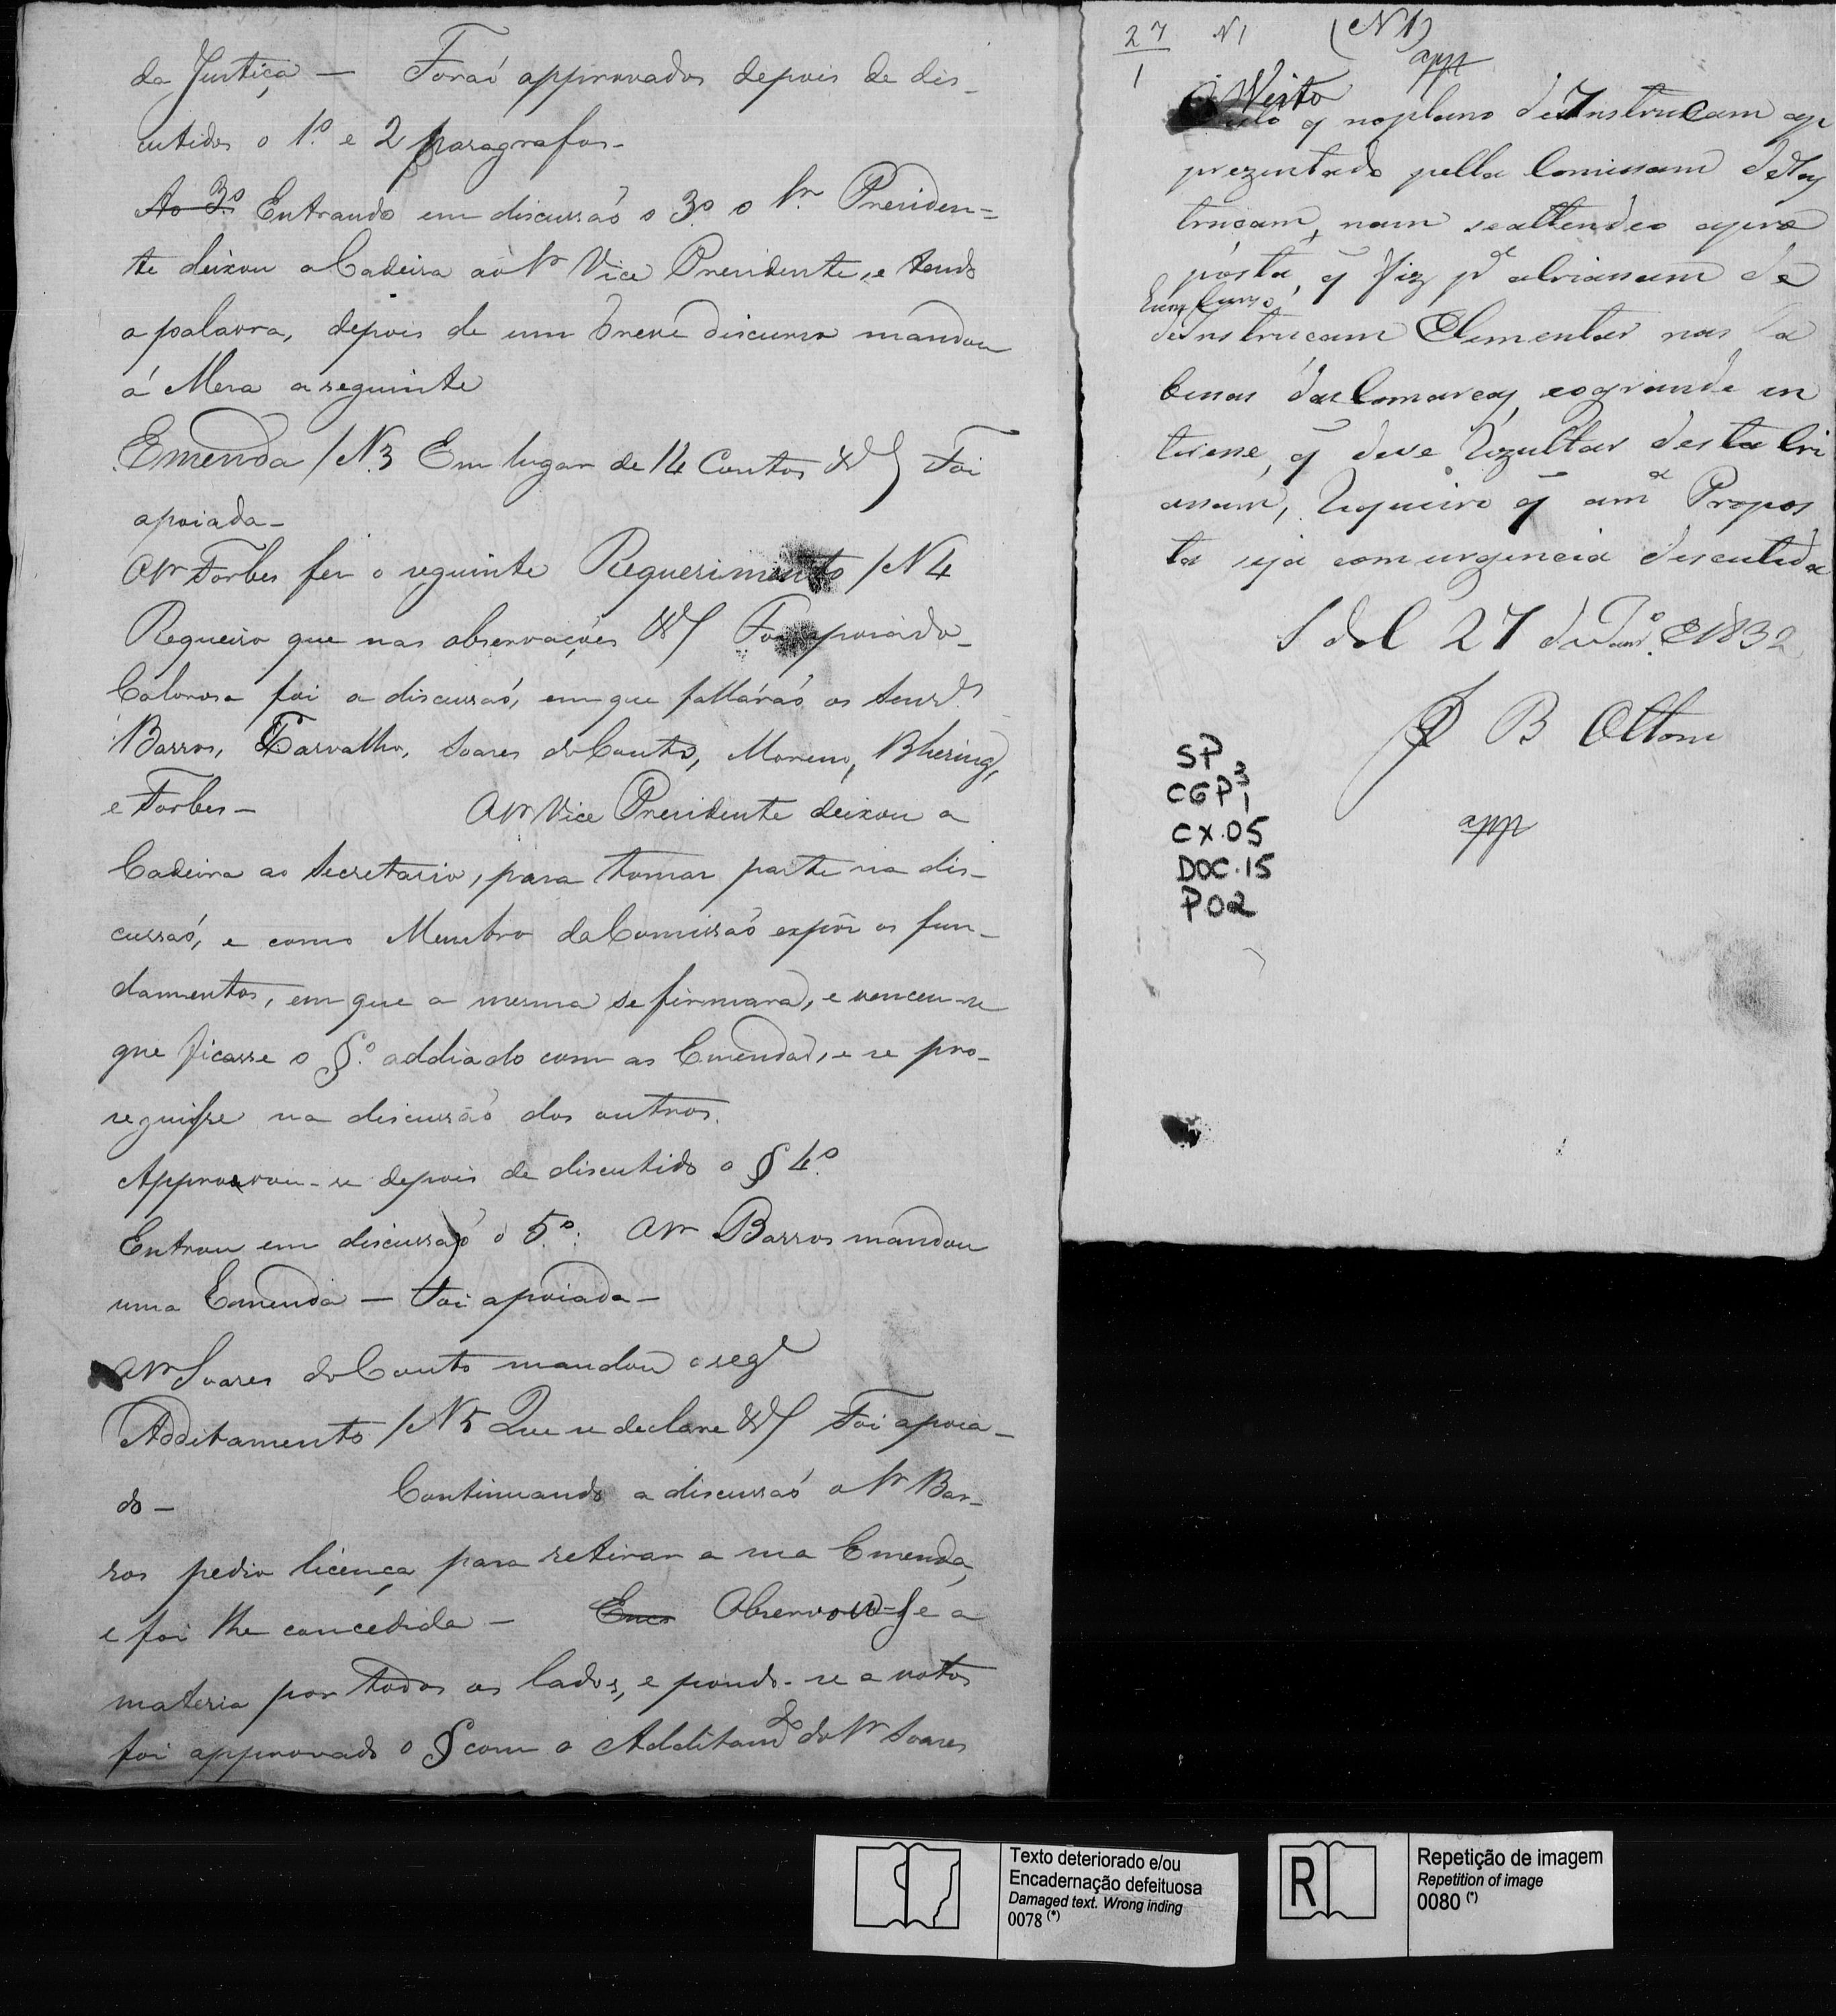 da Justiça — Foraó approvados depois de dis-
cutidos o 1.º e 2 paragrafos-
Ao 3.º Entrando em discussaó o 3.º o Sr. Presiden=
te deixou a Cadeira ao Sr Vice Presidente, e tendo
a palavra, depois de um breve discurso mandou
á Mesa a seguinte
Emenda / N.3 Em lugar de 14 Contos &ª Foi
apoiada-
O Sr Forbes fez o seguinte Requerimento / N 4
Requeiro que nas observações &ª Foi apoiado-
Calorosa foi a discussaó, em que fallaraó os Senr.es
Barros, Carvalho, Soares do Couto, Moreno, Bhering,
e Forbes- O Sr Vice Presidente deixou a
Cadeira ao Secretario, para tomar parte na dis-
cussaó, e como Membro da Comissaó expôz os fun-
damentos, em que a mesma se firmara, e venceu-se
que ficasse o §.º addiado com as Emendas, e se pro-
seguisse na discussaó dos outros.
Approvou-se depois de discutido o § 4.º
Entrou em discussaó o 5.º. O Sr Barros mandou
uma Emenda — Foi apoiada-
O Sr Soares do Couto mandou o seg.e
Additamento / N 5 Que se declare &ª Foi apoia-
do- Continuando a discussaó o Sr Bar-
ros pedio licença para retirar a sua Emenda,
e foi lhe concedida — Observou-se a
materia por todos os lados, e pondo-se a votos
foi approvado o § com o Additam.to do Sr Soares
27 N1 (N 1)
1 app
Visto
q̃ no plano de Instrucam ap
prezentado pella Comissam de Ins
trucam, nam se attendeo a pro
pósta, q̃ fiz p.ª a criassam de
hum Curso
de Instrucam Elementar nas Ca
becas das Comarcas, e o grande in
teresse, q̃ deve rezultar desta Cri
assam, Requeiro q̃ a m.ª Propos
ta seja com urgencia descutida
S do C 27 de Jan.º de 1832
J B Ottoni
app
SP
CGP 3
1
CX.05
DOC.15
P02
Texto deteriorado e/ou
Encadernação defeituosa
Damaged text. Wrong inding
0078 (*)
R
Repetição de imagem
Repetition of image
0080 (*)